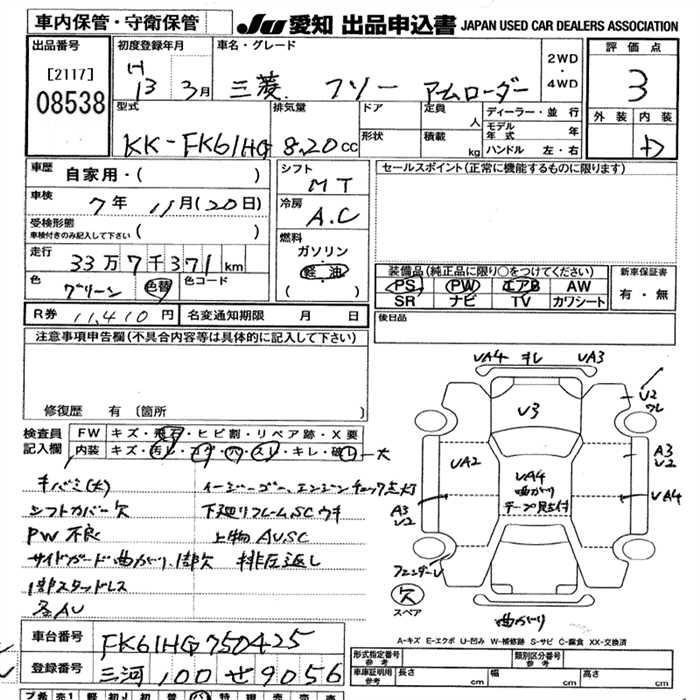 車内保管・守衛保管 JU 愛知 出品申込書 JAPAN USED CAR DEALERS ASSOCIATION
出品番号 初度登録年月 車名・グレード 評価点
[2117] H 13 3月 三菱 フソー アームローダー 2WD・4WD 3
08538 型式 排気量 ドア 定員 人 ディーラー・並行 外装 内装
KK-FK61HG 8.20cc 形状 積載 kg モデル年式 年 ハンドル 左・右 D
車歴 自家用・( ) シフト MT セールスポイント(正常に機能するものに限ります)
車検 7年 11月(20日) 冷房 A.C
受検形態 車検付きのみ記入して下さい ( ) 燃料 ガソリン
走行 33万7千371km 軽油
色 グリーン 色替 色コード ( )
装備品(純正品に限り○をつけてください) 新車保証書
PS PW エアB AW 有・無
SR ナビ TV カワシート
R券 11,410円 名変通知期限 月 日 後日品
注意事項申告欄(不具合内容等は具体的に記入して下さい)
修復歴 有 [箇所 ]
検査員記入欄 FW キズ・飛石・ヒビ割・リペア跡・X要
内装 キズ・汚レ・コゲ・穴・スレ・キレ・破レ 大
キバミ(大) イージーゴー、エンジンチェック点灯
シフトカバー欠 下廻りフレームSCウキ
PW不良 上物AU,SC
サイドガード曲がり、1部欠 排圧返し
1部スタッドレス
各AU
UA4 キレ UA3
U2 ワレ
U3
UA2
A3 U2
UA4 曲がり テープ貼付
UA4
A3 U2
フェンダーU
欠 スペア
曲がり
A-キズ E-エクボ U-凹み W-補修跡 S-サビ C-腐食 XX-交換済
車台番号 FK61HG750425 形式指定番号 参考 類別区分番号 参考
登録番号 三河 100 せ 9056 車庫証明用 参考 長さ cm 幅 cm 高さ cm